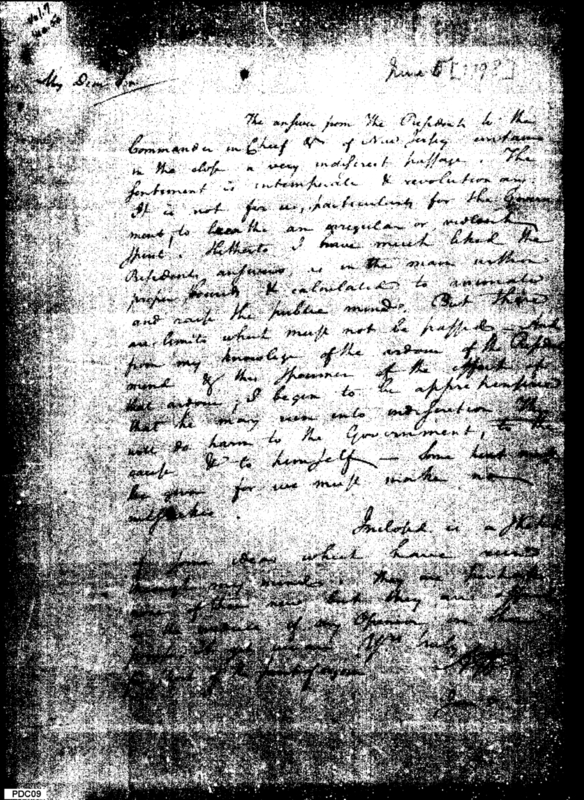 My Dear Sir
June 5 [1798]
The answer from The President to the
Commander in Chief &c of New Jersey contains
in the close a very indiscreet passage. The
sentiment is intemperate & revolutionary.
It is not for us, particularly for the Govern
ment, to breathe an irregular or violent
spirit. Hitherto I have much liked the
Presidents answers as in the main within
proper bounds & calculated to animate
and raise the public mind. But there
are limits which must not be passed — And
from my knowlege of the ardour of the Presidents
mind & this specimen of the effects of
that ardour, I begin to be apprehensive
that he may run into indiscretion. This
will do harm to the Government, to the
cause & to himself — Some hint must
be given for we must make no
mistakes.
Inclosed is a sketch
of some ideas which have
through my mind. They are perhaps
of them new but they are
as the evidence of my Opinion on the
Yrs truly
PDC09